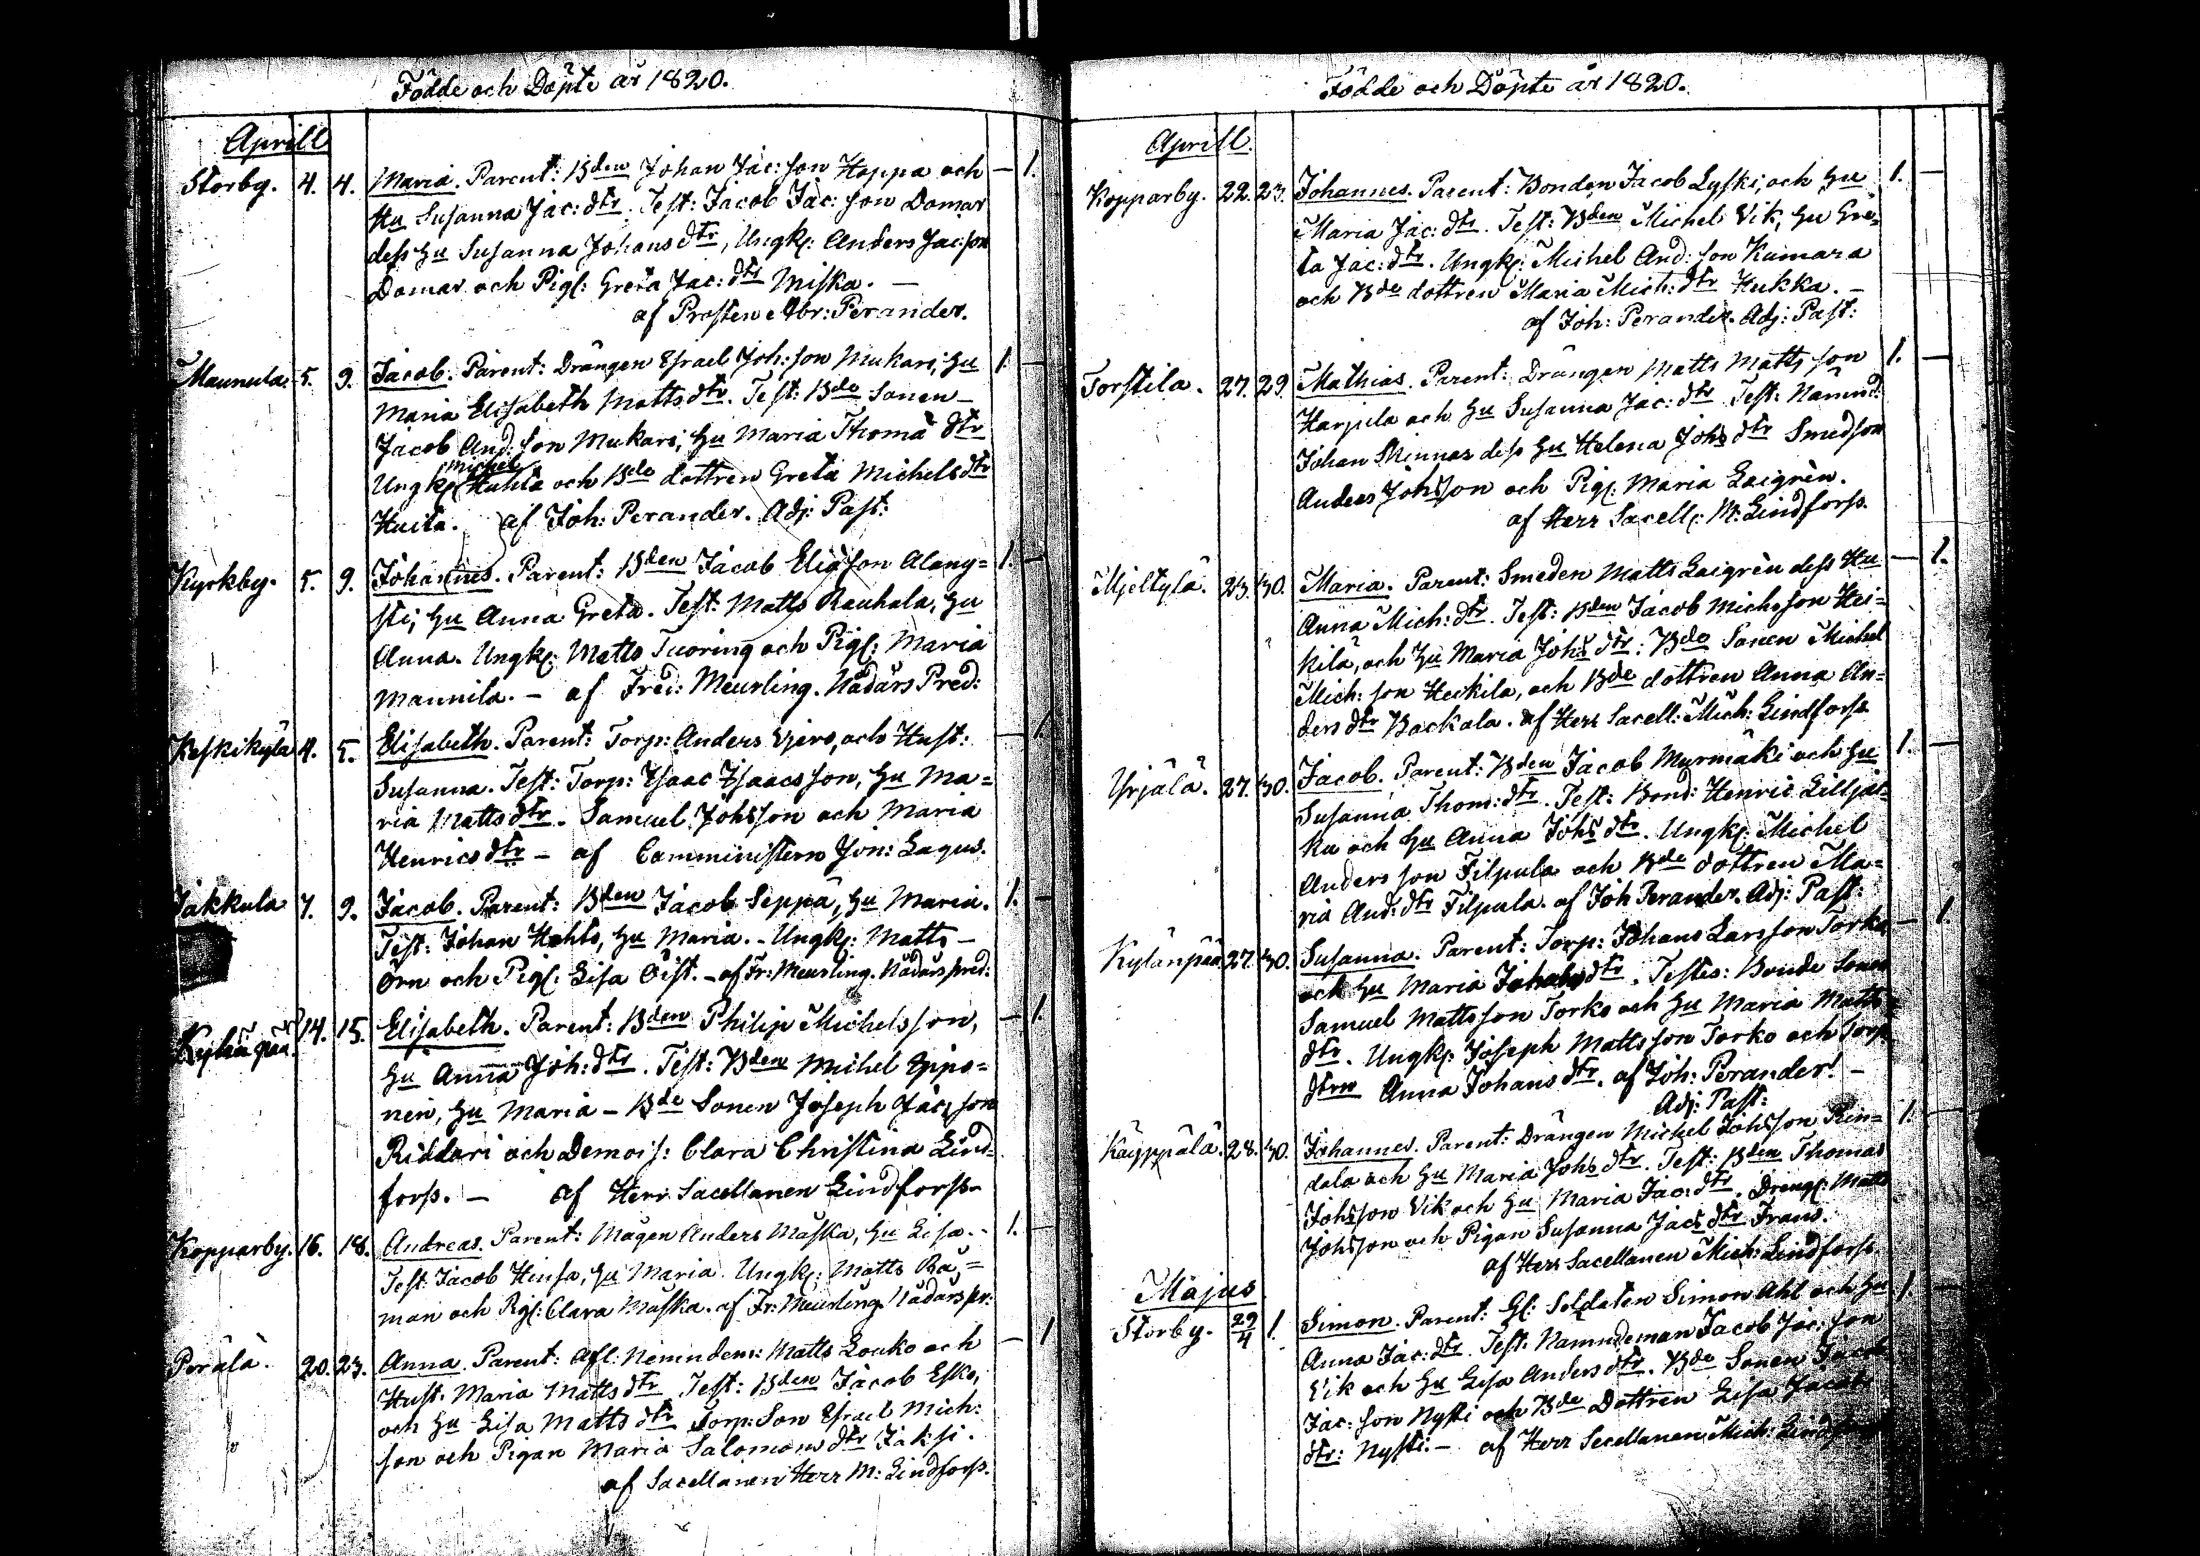 Födde och Döpte år 1820.
Aprill
Storby. 4. 4. Maria. Parent: Bden Johan Jac: son Hoppa och — 1.
Hu Susanna Jac: dtr. Test: Jacob Jac: son Domar
dess Hu Susanna Johans dtr, Ungk: Anders Jac: son
Domar och Pigl: Greta Jac: dtr Miska. —
af Prosten Abr: Perander.
Maunula. 5. 9. Jacob. Parent: Drängen Esrael Joh: son Mukari, Hu 1. —
Maria Elisabeth Matts dtr. Test: Bde Sonen —
Jacob And: son Mukari; Hu Maria Thomæ dtr
Ungk: Michel Huhta och Bde dottren Greta Michels dtr
Huita. af Joh: Perander. Adj: Past:
Kyrkby. 5. 9. Johannes. Parent: Bden Jacob Eliæson Alang= 1. —
sti; Hu Anna Greta. Test: Matts Rauhala, Hu
Anna. Ungk: Matts Tuoring och Pigl: Maria
Mannila. — af Fred: Meurling. Nådårs Pred:
Keskikylä 4. 5. Elisabeth. Parent: Torp: Anders Ojero, och Hust: — 1
Susanna. Test: Torp: Isaac Isaacs son, Hu Ma=
ria Matts dtr. Samuel Johsson och Maria
Henrics dtr — af Comministern Jon: Lagus.
Jakkula 7. 9. Jacob. Parent: Bden Jacob Seppä, Hu Maria. 1. —
Test: Johan Hohto, Hu Maria. - Ungk: Matts —
Örn och Pigl: Lisa Öist. — af Fr: Meurling. Nådårs pred:
Kylänpää. 14. 15. Elisabeth. Parent: Bden Philip Michelsson, — 1.
Hu Anna Joh: dtr. Test: Bden Michel Eppo=
nen, Hu Maria — Bde Sonen Joseph Jac: son
Riddari och Demois: Clara Christina Lind=
forss. — af Herr Sacellanen Lindforss
Kopparby. 16. 18. Andreas. Parent: Mågen Anders Maska, Hu Lisa. - 1. —
Test: Jacob Hinsa, Hu Maria. Ungk: Matts Rå=
man och Pigl: Clara Maska. af Fr: Meurling. Nådårs pr:
Perälä. 20. 23. Anna. Parent: Afl: Nämndem: Matts Louko och — 1
Hust. Maria Matts dtr Test: Bden Jacob Esko,
och Hu Lisa Matts dtr Torp: Son Esrael Mich:
son och Pigan Maria Salomons dtr Jaksi.
af Sacellanen Herr M: Lindforss.
Födde och Döpte år 1820.
Aprill.
Kopparby. 22. 23. Johannes. Parent: Bonden Jacob Lyski, och Hu 1. —
Maria Jac: dtr. Test: Bden Michel Vik, Hu Gre=
ta Jac: dtr. Ungk: Michel And: son Kamara
och Bde dottren Maria Mich: dtr Hukka. —
af Joh: Perander. Adj: Past:
Torstila. 27. 29. Mathias. Parent: Drängen Matts Matts son 1. —
Harpila och Hu Susanna Jac: dtr Test: Nämnd:
Johan Skinnar dess Hu Helena Johs dtr Smedson
Anders Johsson och Pigl: Maria Laigrén.
af Herr Sacell: M: Lindforss.
Mjeltylä. 23. 30. Maria. Parent: Smeden Matts Laigrén dess Hu — 1.
Anna Mich: dtr. Test: Bden Jacob Michsson Hei=
kilä, och Hu Maria Johs dtr: Bde Sonen Michel
Mich: son Heikila, och Bde dottren Anna An=
ders dtr Backala. af Herr Sacell: Mich: Lindforss
Yrjälä. 27. 30. Jacob. Parent: Bden Jacob Myrmäki och Hu 1. —
Susanna Thom: dtr. Test: Bond: Henric Liljas=
ku och Hu Anna Johs dtr. Ungk: Michel
Anders son Filpula och Bde dottren Ma=
ria And: dtr Filpula. af Joh Perander. Adj: Past:
Kylänpää 27. 30. Susanna. Parent: Torp: Johans Larsson Torko — 1.
och Hu Maria Johans dtr. Testes: Bonde Sonen
Samuel Mattsson Torko och Hu Maria Matts
dtr. Ungk: Joseph Mattsson Torko och Torp
dtrn Anna Johans dtr. af Joh: Perander! —
Adj: Past:
Käyppälä. 28. 30. Johannes. Parent: Drängen Michel Johsson Rin= 1. —
dala och Hu Maria Johs dtr. Test: Bden Thomas
Johsson Vik och Hu Maria Jac: dtr. Dräng: Matts
Johsson och Pigan Susanna Jacs dtr Frans.
af Herr Sacellanen Mich: Lindforss.
Majus
Storby. 29/4 1. Simon. Parent: Gl: Soldaten Simon Ahl och Hu 1. —
Anna Jac: dtr. Test. Nämndeman Jacob Jac: son
Vik och Hu Lisa Anders dtr. Bde Sonen Jacob
Jac: son Nysti och Bde Dottren Lisa Jacobs
dtr: Nysti. — af Herr Secellanen Mich: Lindforss